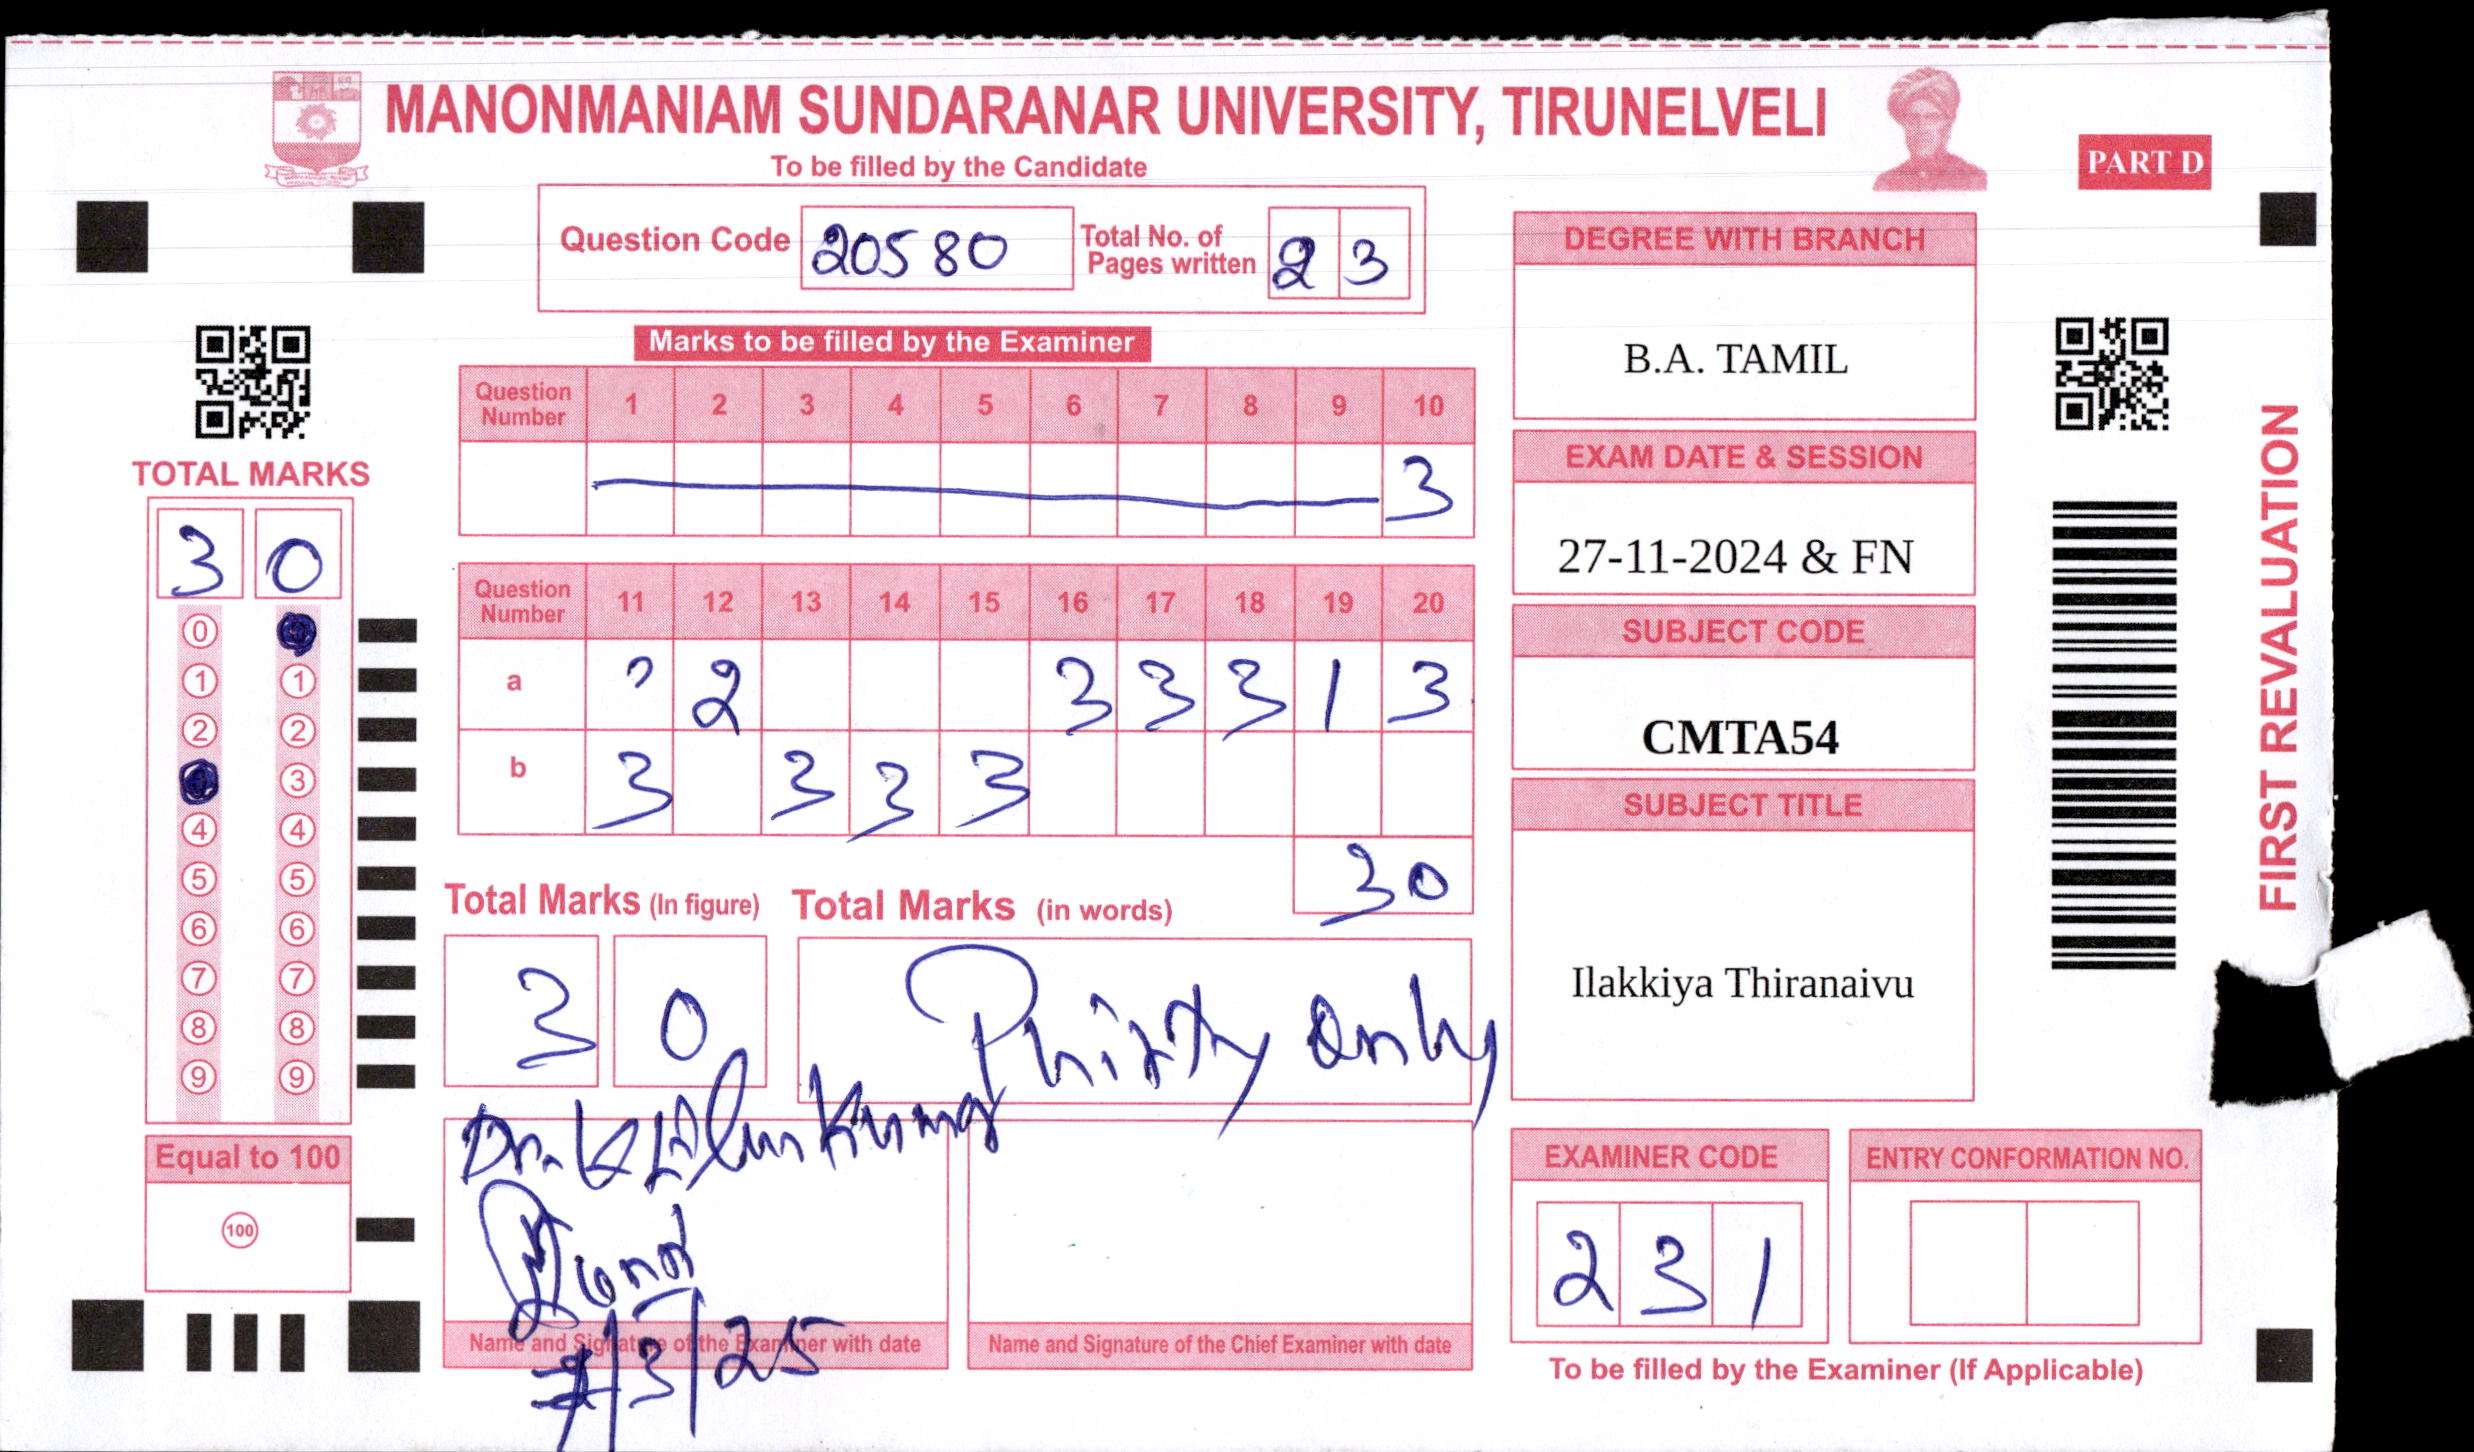 MANONMANIAM SUNDARANAR UNIVERSITY, TIRUNELVELI
To be filled by the Candidate
PART D
Question Code 20580
Total No. of Pages written 2 3
Marks to be filled by the Examiner
Question Number 1 2 3 4 5 6 7 8 9 10
3
Question Number 11 12 13 14 15 16 17 18 19 20
a 2 3 3 3 1 3
b 3 3 3 3
30
TOTAL MARKS
3 0
0
1 1
2 2
3
4 4
5 5
6 6
7 7
8 8
9 9
Equal to 100
100
Total Marks (In figure)
3 0
Total Marks (in words)
Thirty only
Dr.
7/3/25
Name and Signature of the Examiner with date
Name and Signature of the Chief Examiner with date
DEGREE WITH BRANCH
B.A. TAMIL
EXAM DATE & SESSION
27-11-2024 & FN
SUBJECT CODE
CMTA54
SUBJECT TITLE
Ilakkiya Thiranaivu
EXAMINER CODE
2 3 1
ENTRY CONFORMATION NO.
To be filled by the Examiner (If Applicable)
FIRST REVALUATION